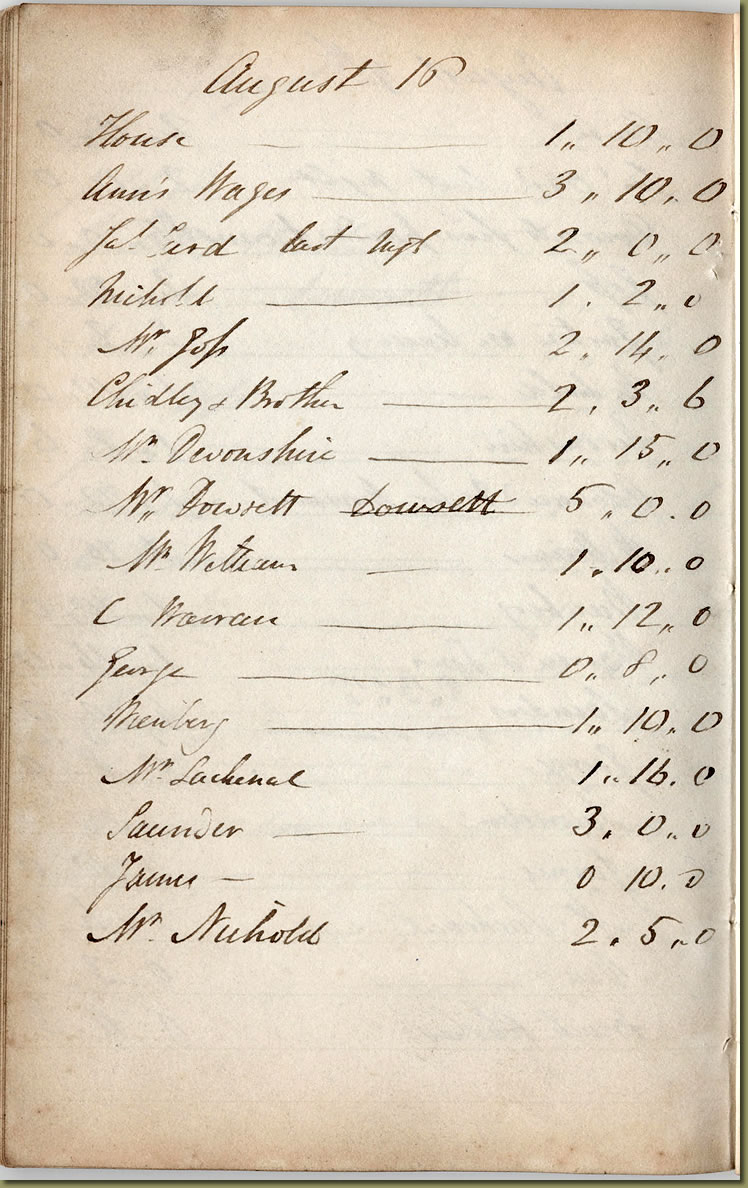 August 16
House — 1 ,, 10 ,, 0
Ann's Wages — 3 ,, 10 ,, 0
Jas. last 2 ,, 0 ,, 0
Nickold — 1 . 2 ,, 0
Mr. Goss 2 . 14 . 0
Chidley & Brother — 2 . 3 ,, 6
Mr. Devonshire — 1 ,, 15 ,, 0
Mr. Dowsett Dowsett 5 ,, 0 . 0
Mr — 1 . 10 .. 0
C — 1 ,, 12 ,, 0
George — 0 ,, 8 ,, 0
— 1 ,, 10 ,, 0
Mr. Lachenal 1 ,, 16 . 0
Saunder — 3 . 0 ,, 0
James — 0 10 . 0
Mr. Nickold 2 . 5 ,, 0